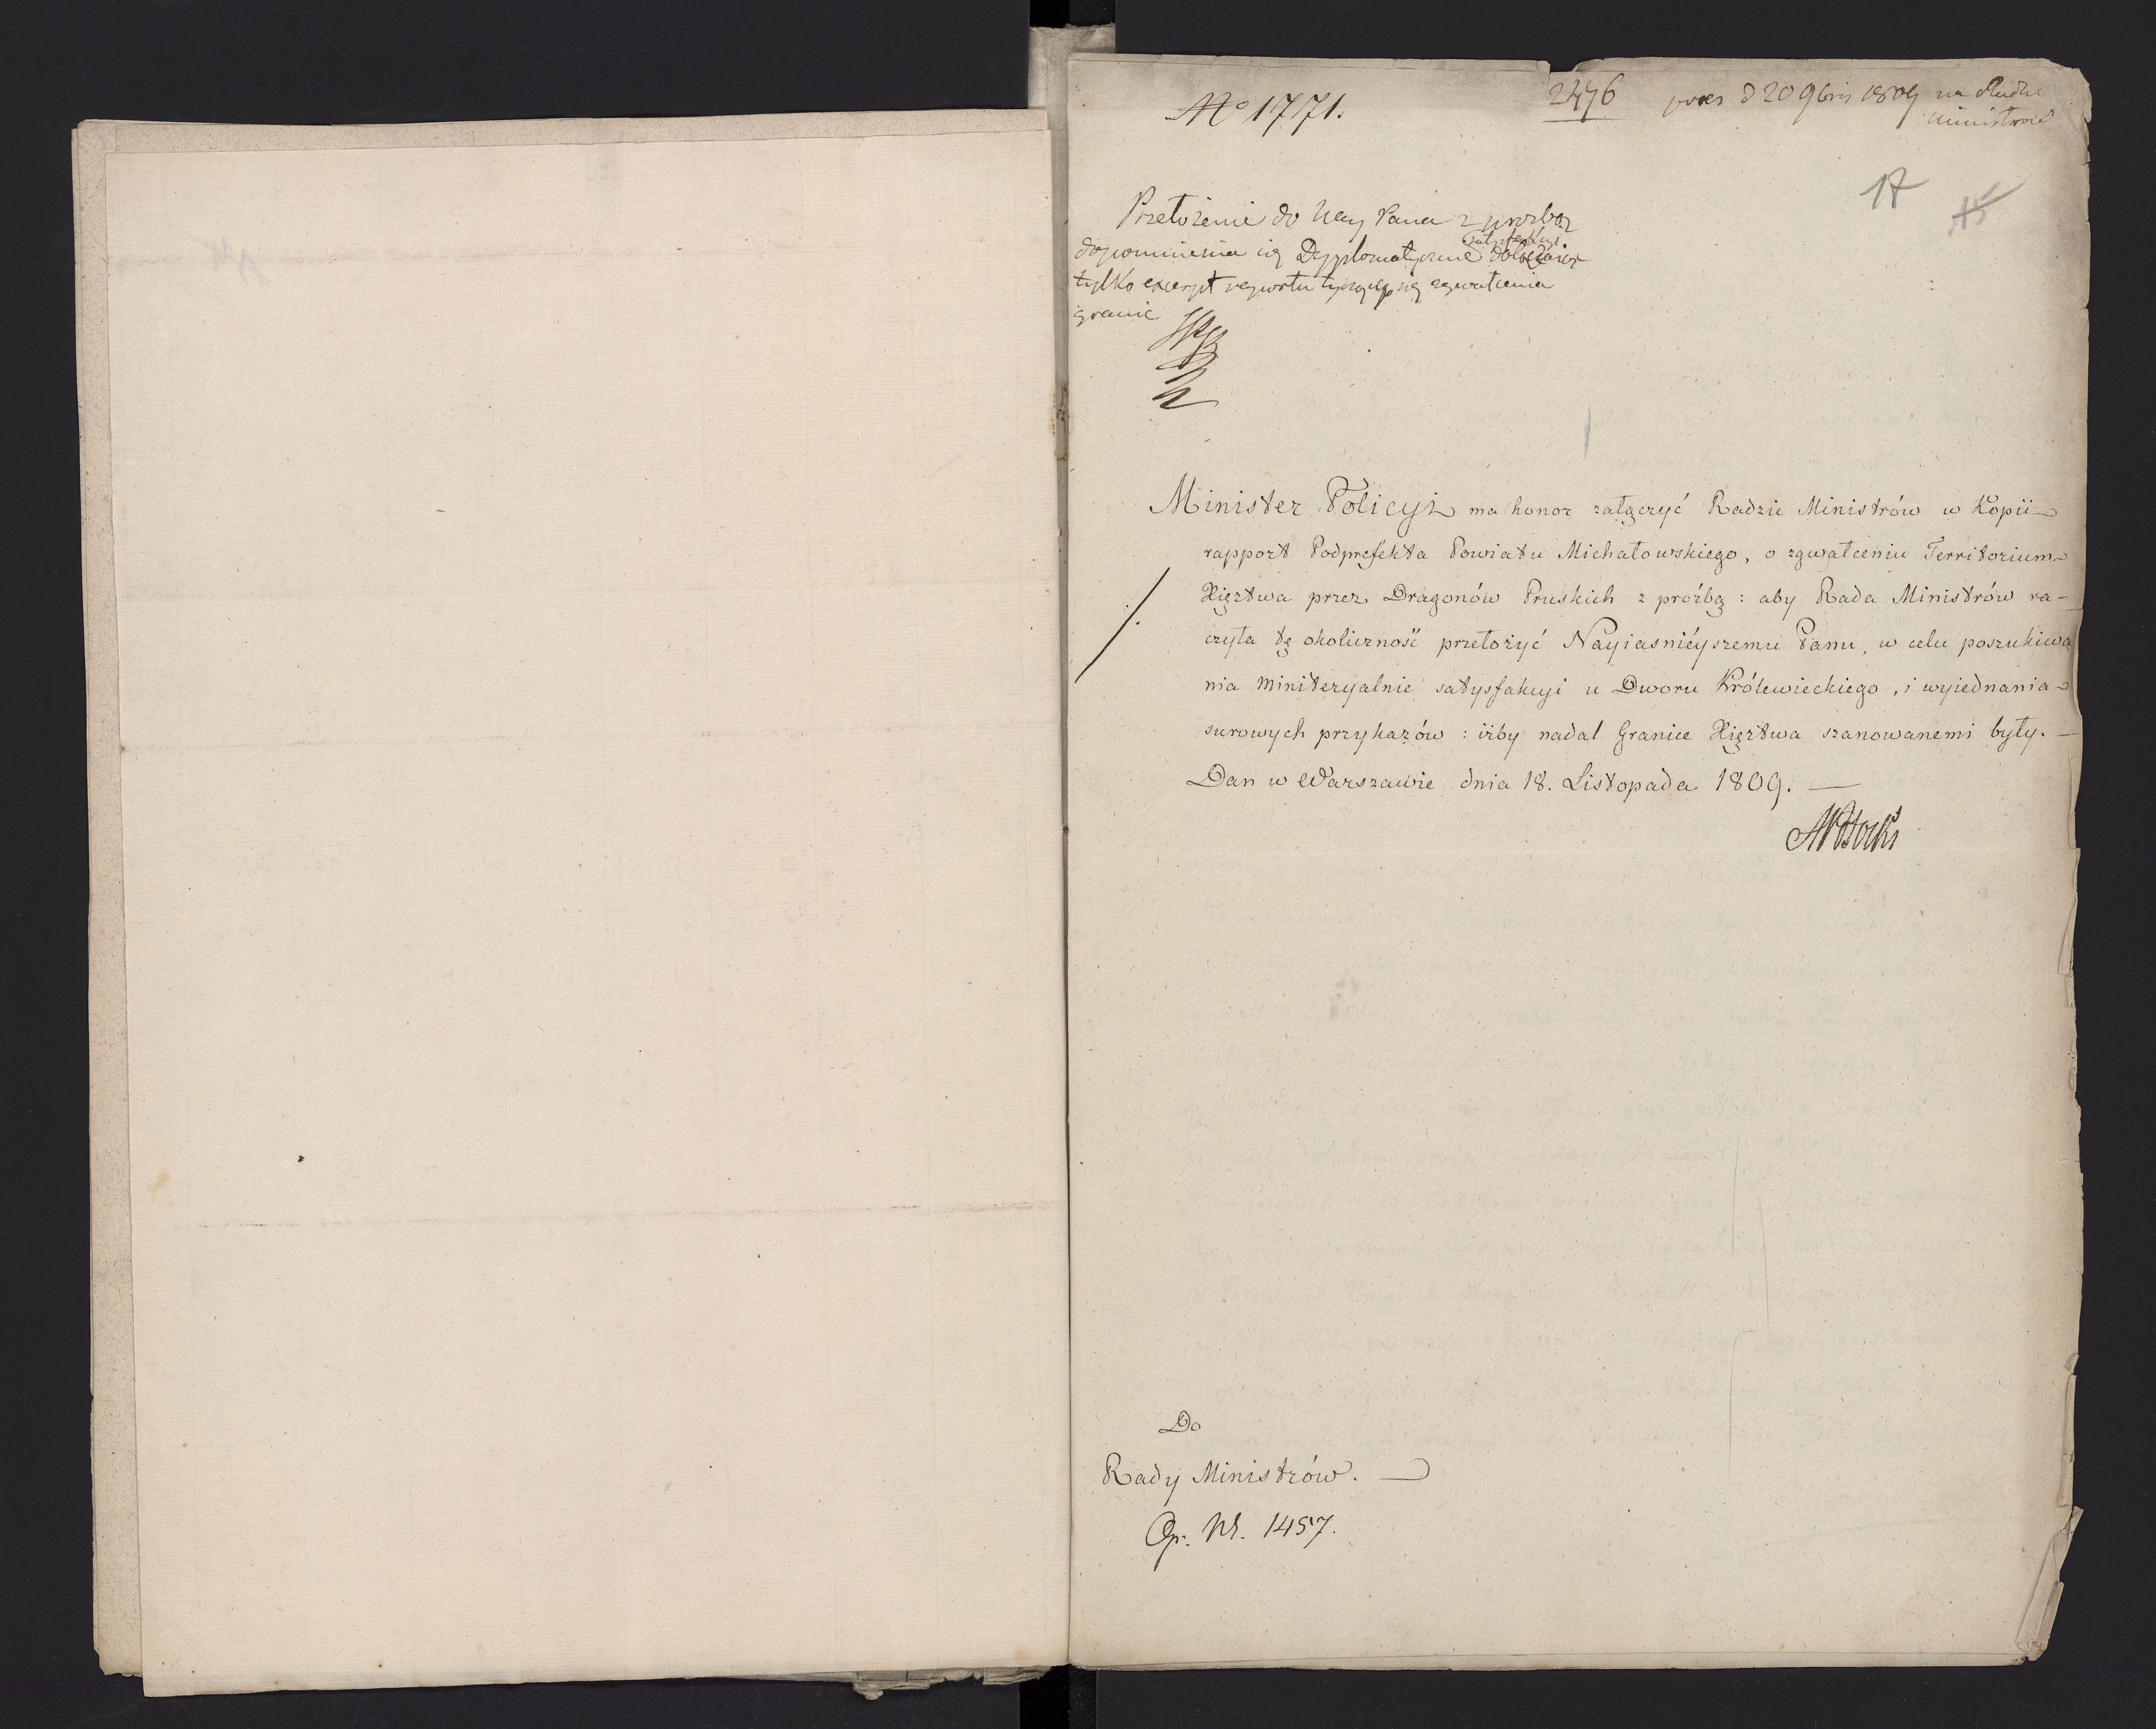 No 1771.
2476
præs d 20 9bris 1809 na Radzie
Ministrów
17 15
Przełożenie do Nay Pana z proźbą
dopomnienia się Dyplomatycznie satysfakcyi
tylko excerpt raportu tyczący się zgwałcenia
granic
Minister Policyi ma honor załączyć Radzie Ministrów w Kopii
rapport Podprefekta Powiatu Michałowskiego, o zgwałceniu Territorium
Xięztwa przez Dragonów Pruskich z proźbą: aby Rada Ministrów ra-
czyła tę okoliczność przełożyć Nayiasnieyszemu Panu, w celu poszukiwa
nia miniteryalnie satysfakcyi u Dworu Królewieckiego, i wyiednania
surowych przykazów: iżby nadal Granice Xięztwa szanowanemi były. —
Dan w Warszawie dnia 18. Listopada 1809. —
APotocki
Do
Rady Ministrów. —
Op. Nr. 1457.